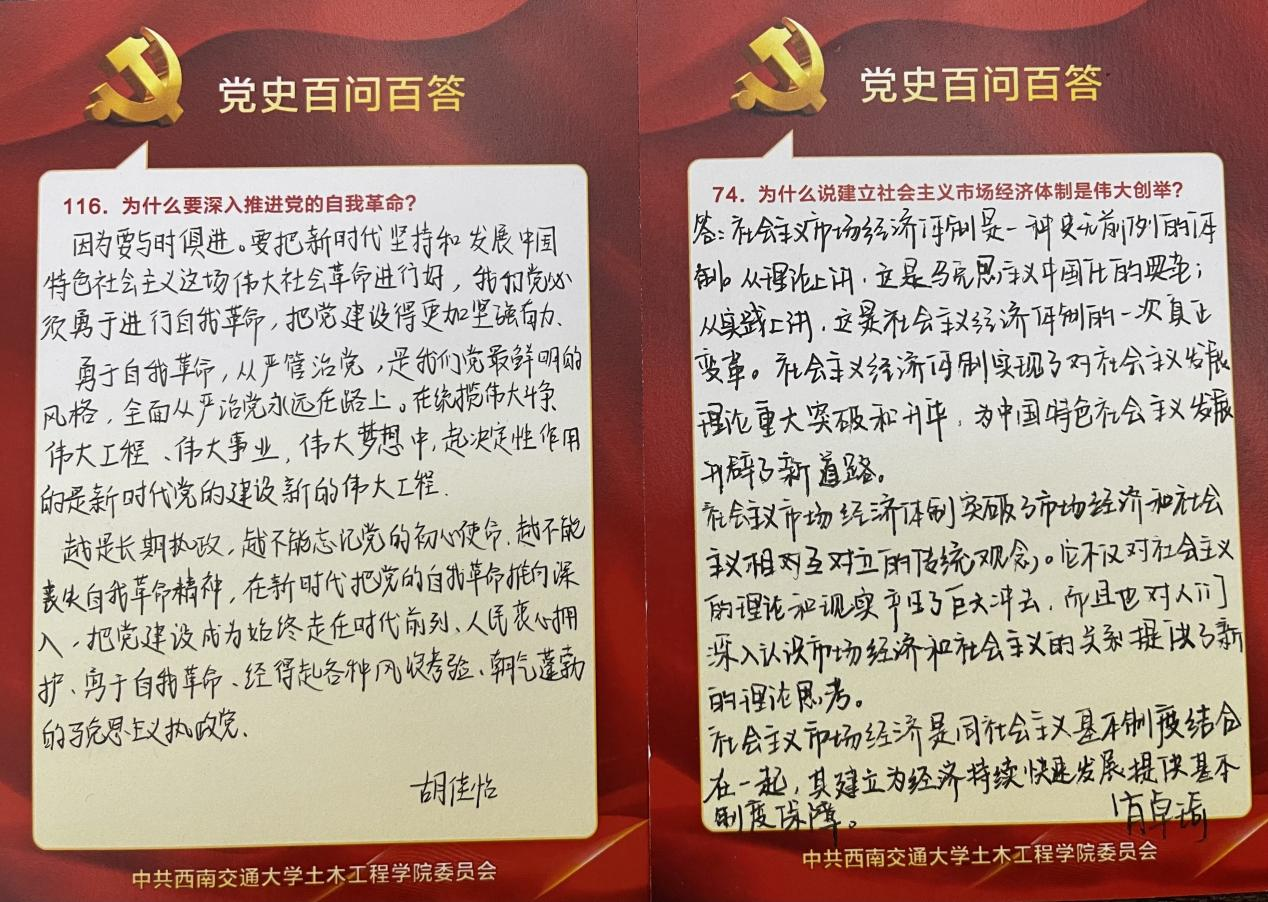 党史百问百答
116. 为什么要深入推进党的自我革命?
因为要与时俱进。要把新时代坚持和发展中国
特色社会主义这场伟大社会革命进行好，我们党必
须勇于进行自我革命，把党建设得更加坚强有力、
勇于自我革命，从严管治党，是我们党最鲜明的
风格，全面从严治党永远在路上。在统揽伟大斗争、
伟大工程、伟大事业，伟大梦想中，起决定性作用
的是新时代党的建设新的伟大工程.
越是长期执政，越不能忘记党的初心使命，越不能
丧失自我革命精神，在新时代把党的自我革命推向深
入，把党建设成为始终走在时代前列、人民衷心拥
护、勇于自我革命、经得起各种风浪考验、朝气蓬勃
的马克思主义执政党.
胡佳怡
中共西南交通大学土木工程学院委员会
党史百问百答
74. 为什么说建立社会主义市场经济体制是伟大创举?
答：社会主义市场经济体制是一种史无前例的体
制。从理论上讲，这是马克思主义中国化的典范；
从实践上讲，这是社会主义经济体制的一次真正
变革。社会主义经济体制实现了对社会主义发展
理论重大突破和升华，为中国特色社会主义发展
开辟了新道路。
社会主义市场经济体制突破了市场经济和社会
主义相对互对立的传统观念。它不仅对社会主义
的理论和现实产生了巨大冲击，而且也对人们
深入认识市场经济和社会主义的关系提供了新
的理论思考。
社会主义市场经济是同社会主义基本制度结合
在一起，其建立为经济持续快速发展提供基本
制度保障。
肖卓琦
中共西南交通大学土木工程学院委员会